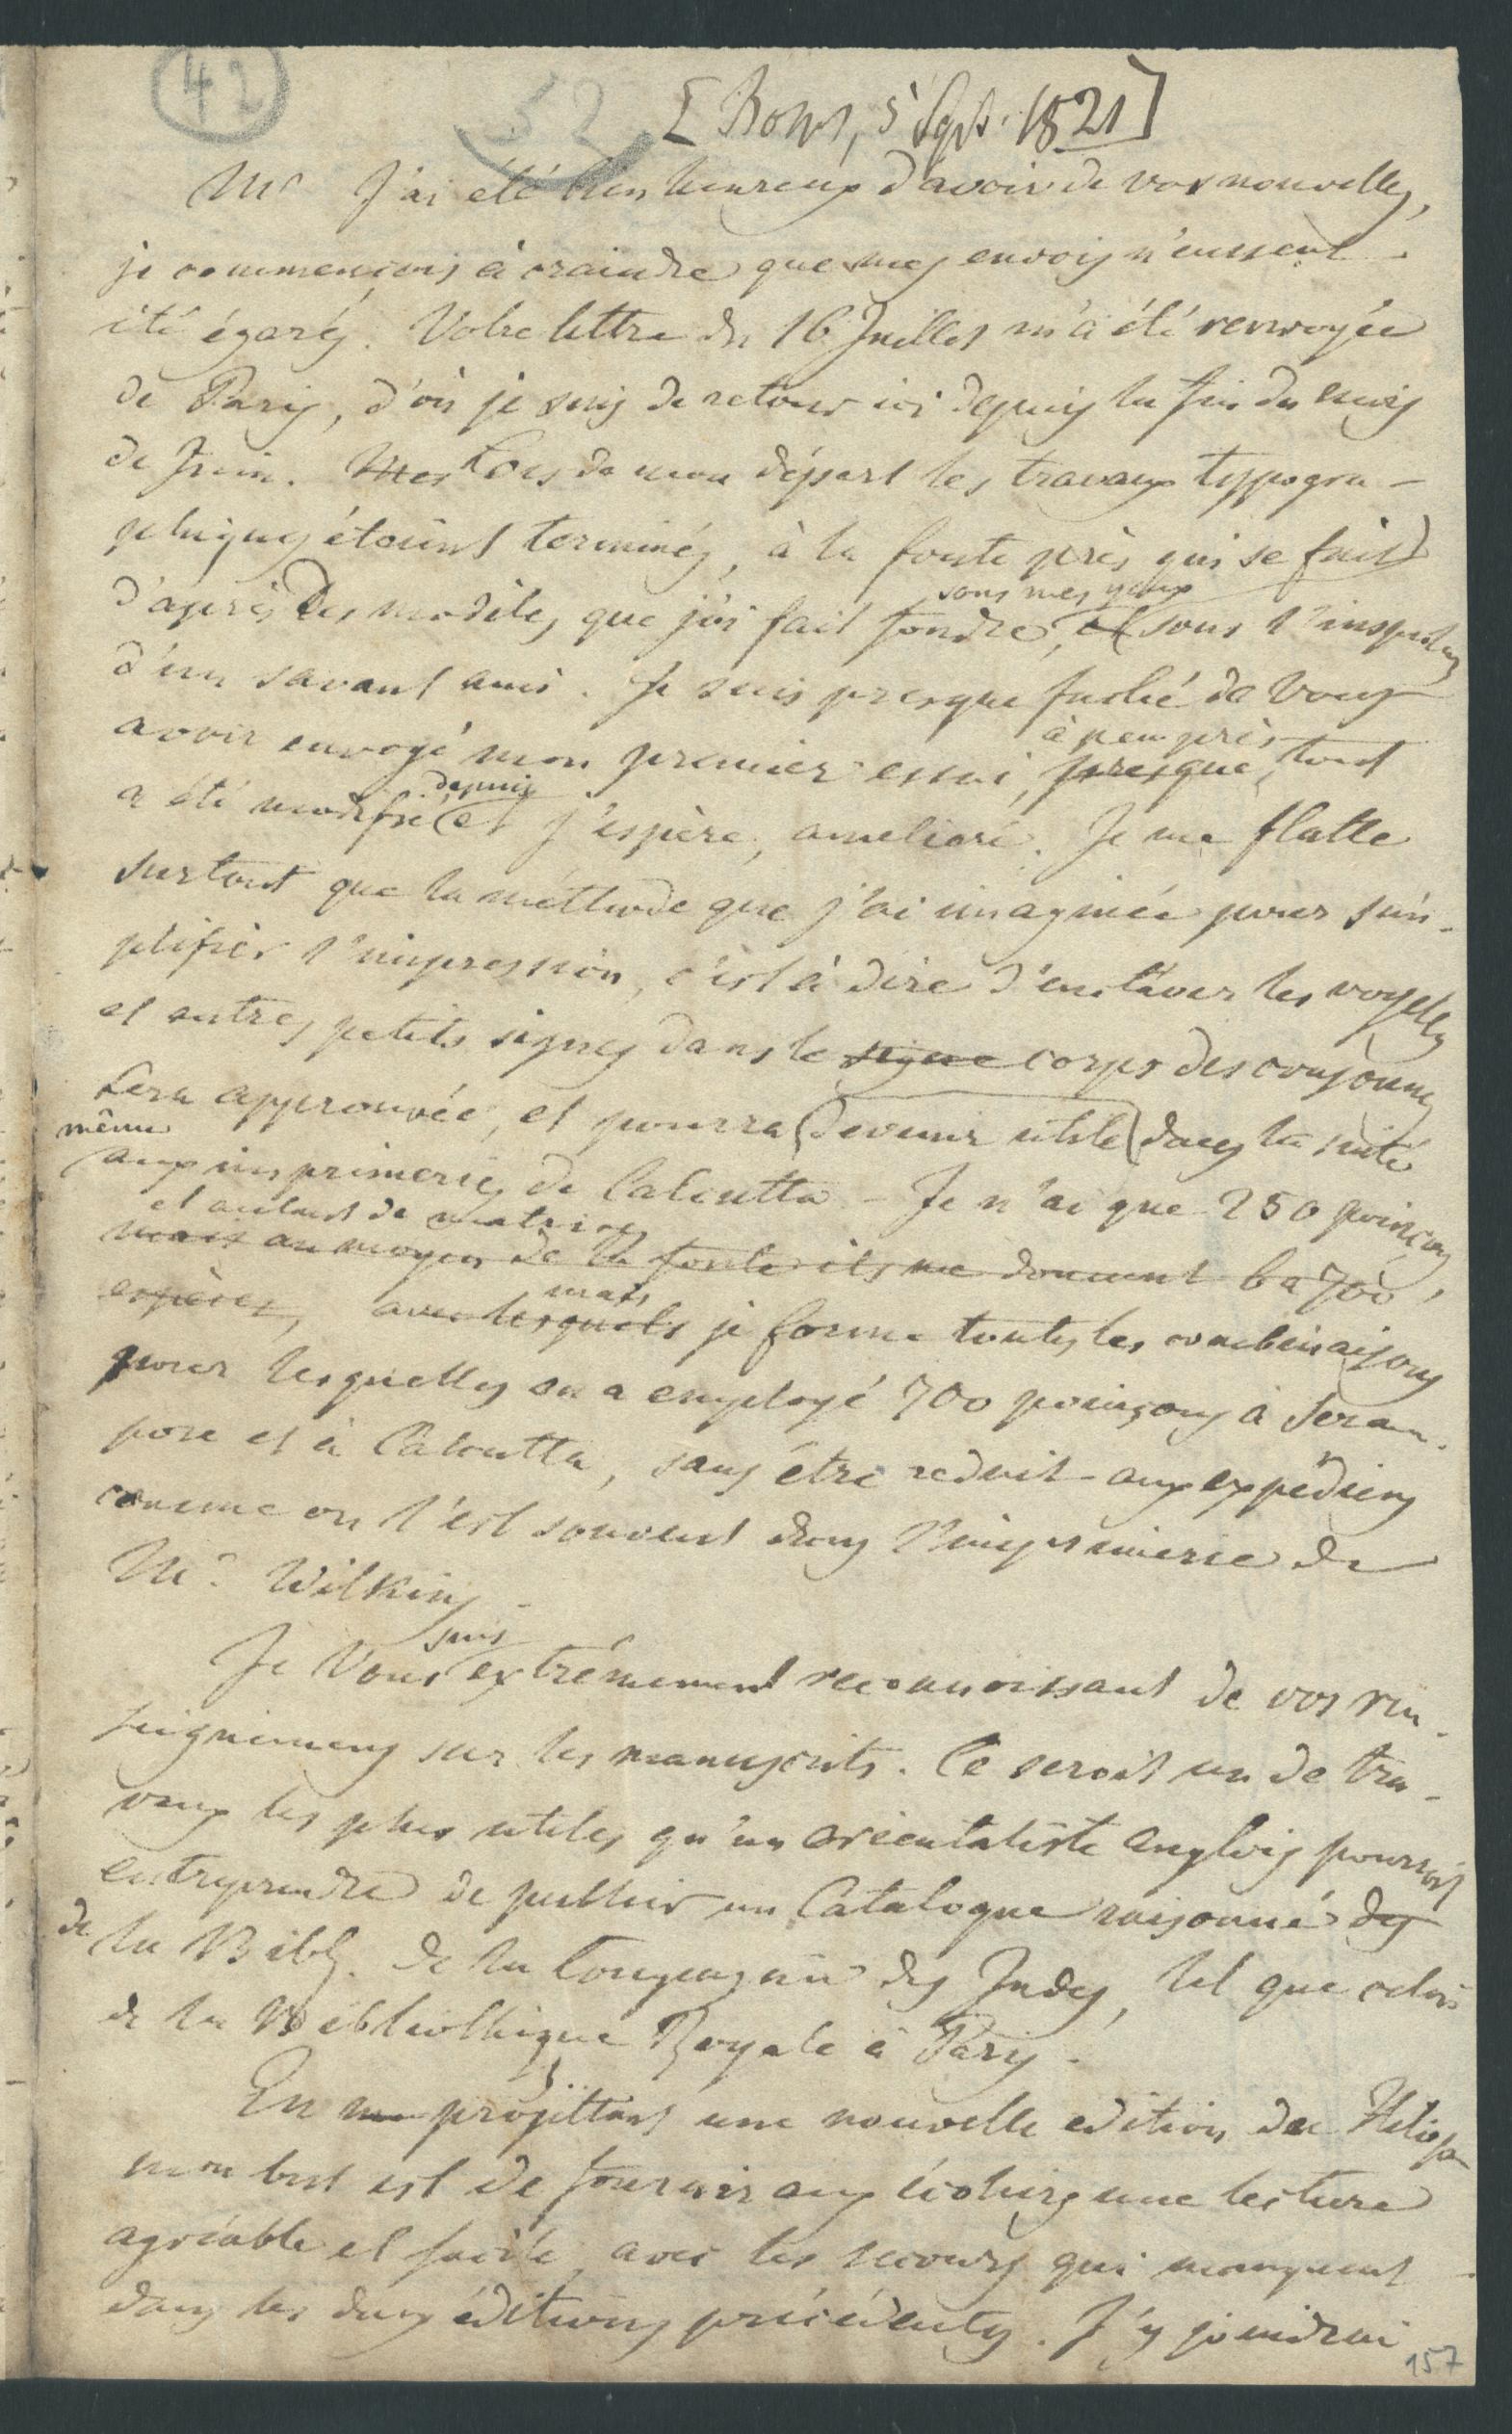 42
52 [Bonn, 5 Sept. 1821]
Mr J'ai été bien heureux d'avoir de vos nouvelles,
je commençois à craindre que mes envois n'eussent
été égarés. Votre lettre du 16 Juillet m'a été renvoyée
de Paris, d'où je suis de retour ici depuis la fin du mois
de Juin. Lors de mon départ les travaux typogra-
phiques étoient terminés, à la fonte près, qui se fait
sous mes yeux
d'après des modèles, que j'ai fait fondre, et sous l'inspection
d'un savant ami. Je suis presque faché de Vous
à peu près
avoir envoyé mon premier essai, presque, tout
depuis
a été modifié et j'espère, amelioré. Je me flatte
surtout que la méthode que j'ai imaginée pour sim-
plifier l'impression, c'est à dire d'enclaver les voyelles
et autres petits signes dans le signe corps des consonnes
sera approuvée, et pourra devenir utile dans la suite
même
aux imprimeries de Calcutta - Je n'ai que 250 poinçons
et autant de matrices
mais au moyen de la fonte ils me donnent 6 a 700,
mais
espèces, avec lesquels je forme toutes les combinaisons
pour lesquelles on a employé 700 poinçons à Seram-
pore et à Calcutta, sans être reduit aux expédiens
comme on l'est souvent dans l'imprimerie de
Mr. Wilkins -
suis
Je Vous extrémement reconnoissant de vos ren-
seignemens sur les manuscrits. Ce seroit un de tra-
vaux les plus utiles qu'un orientaliste anglois pourroit
entreprendre de publier un Catalogue raisonné des
de
la Bibl. de la Compagnie des Indes, tel que celui
de la Bibliothèque Royale à Paris.
En projettant une nouvelle edition du Hitop.
mon but est de fournir aux écoliers une lecture
agréable et facile, avec les secours qui manquent
dans les deux éditions précédentes. J'y joindrai
157